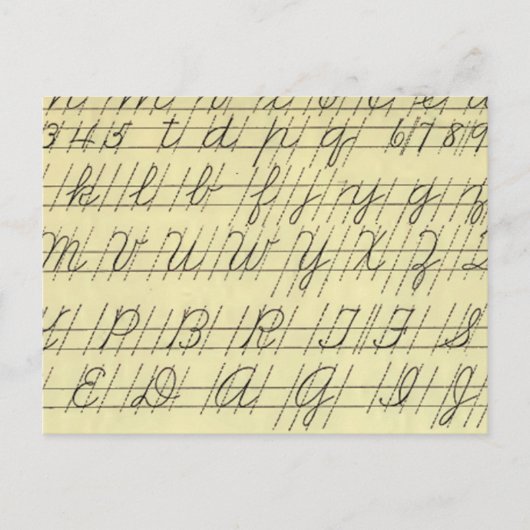 3 4 5 t d p q 6 7 8 9
k l b f j y g z
M V U W Y X Z Q
P B R T F S
E D A G I J